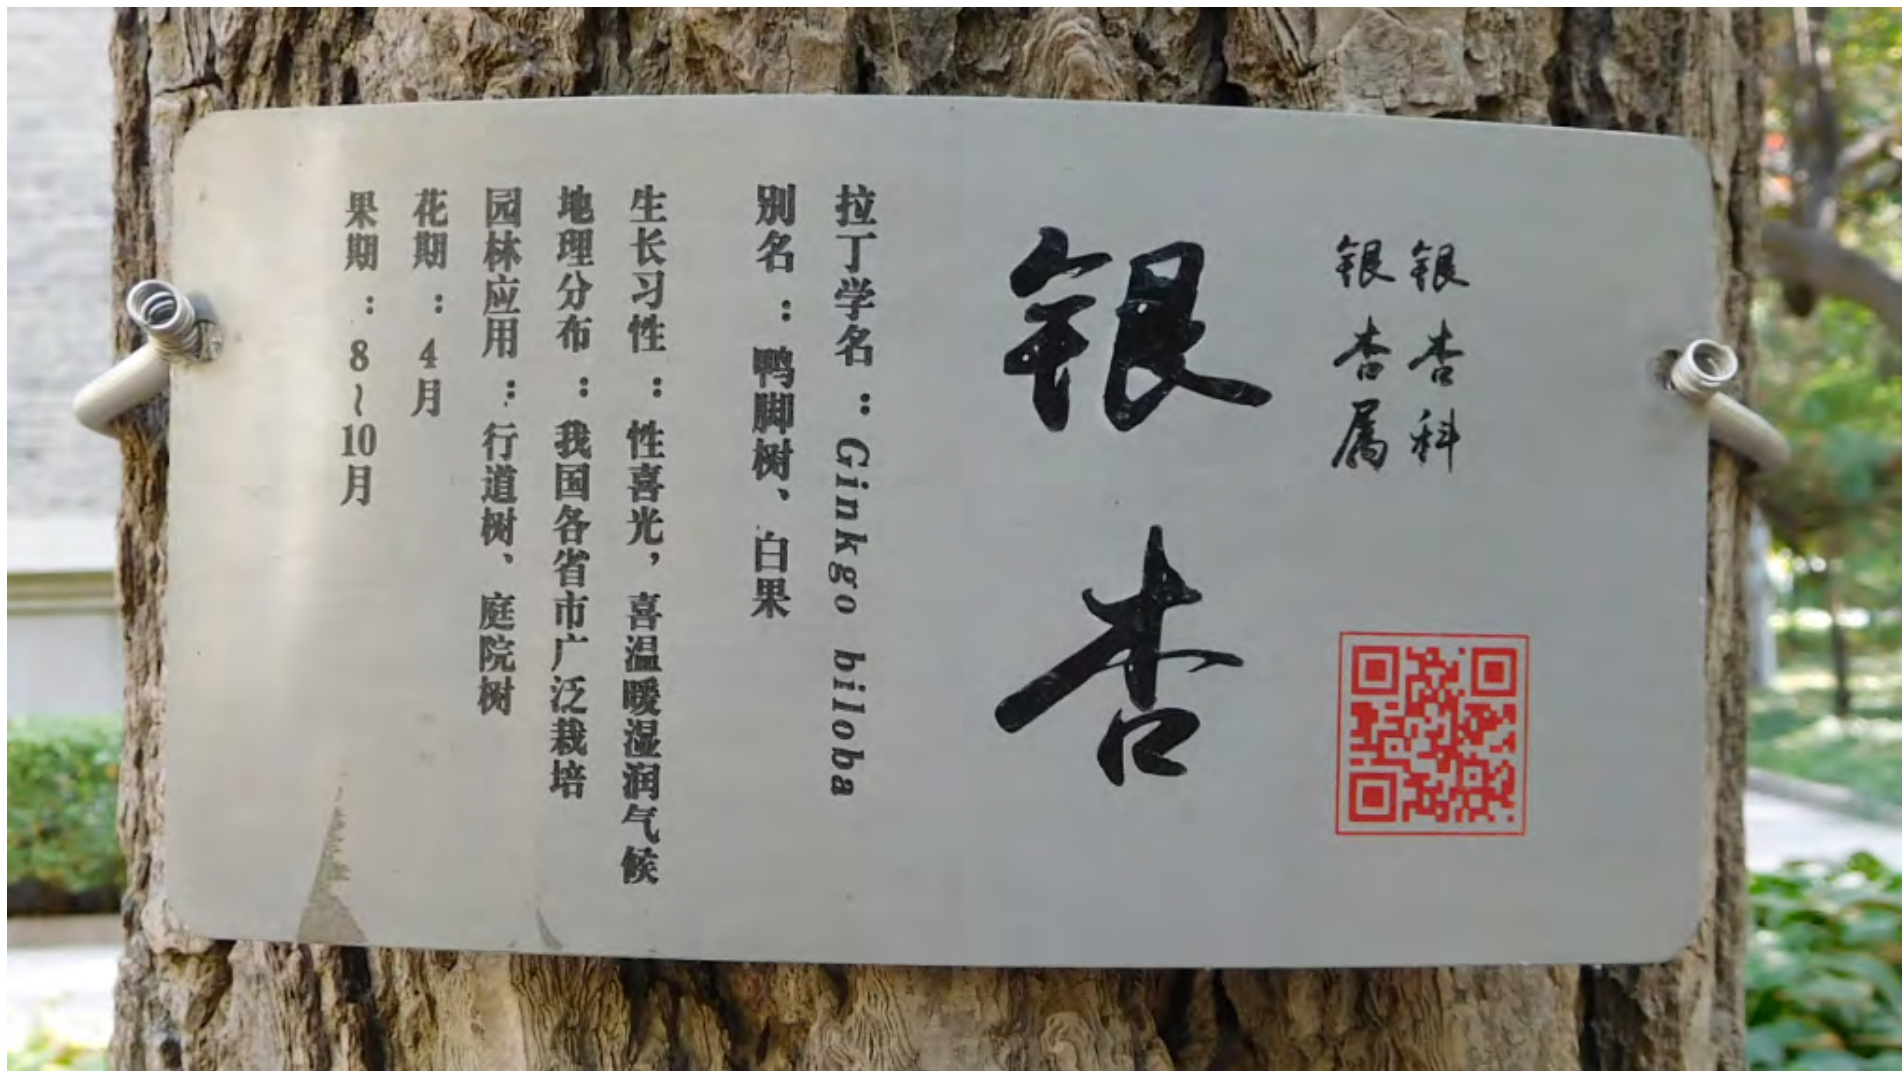 银杏科
银杏属
银杏
拉丁学名：Ginkgo biloba
别名：鸭脚树、白果
生长习性：性喜光，喜温暖湿润气候
地理分布：我国各省市广泛栽培
园林应用：行道树、庭院树
花期：4月
果期：8~10月